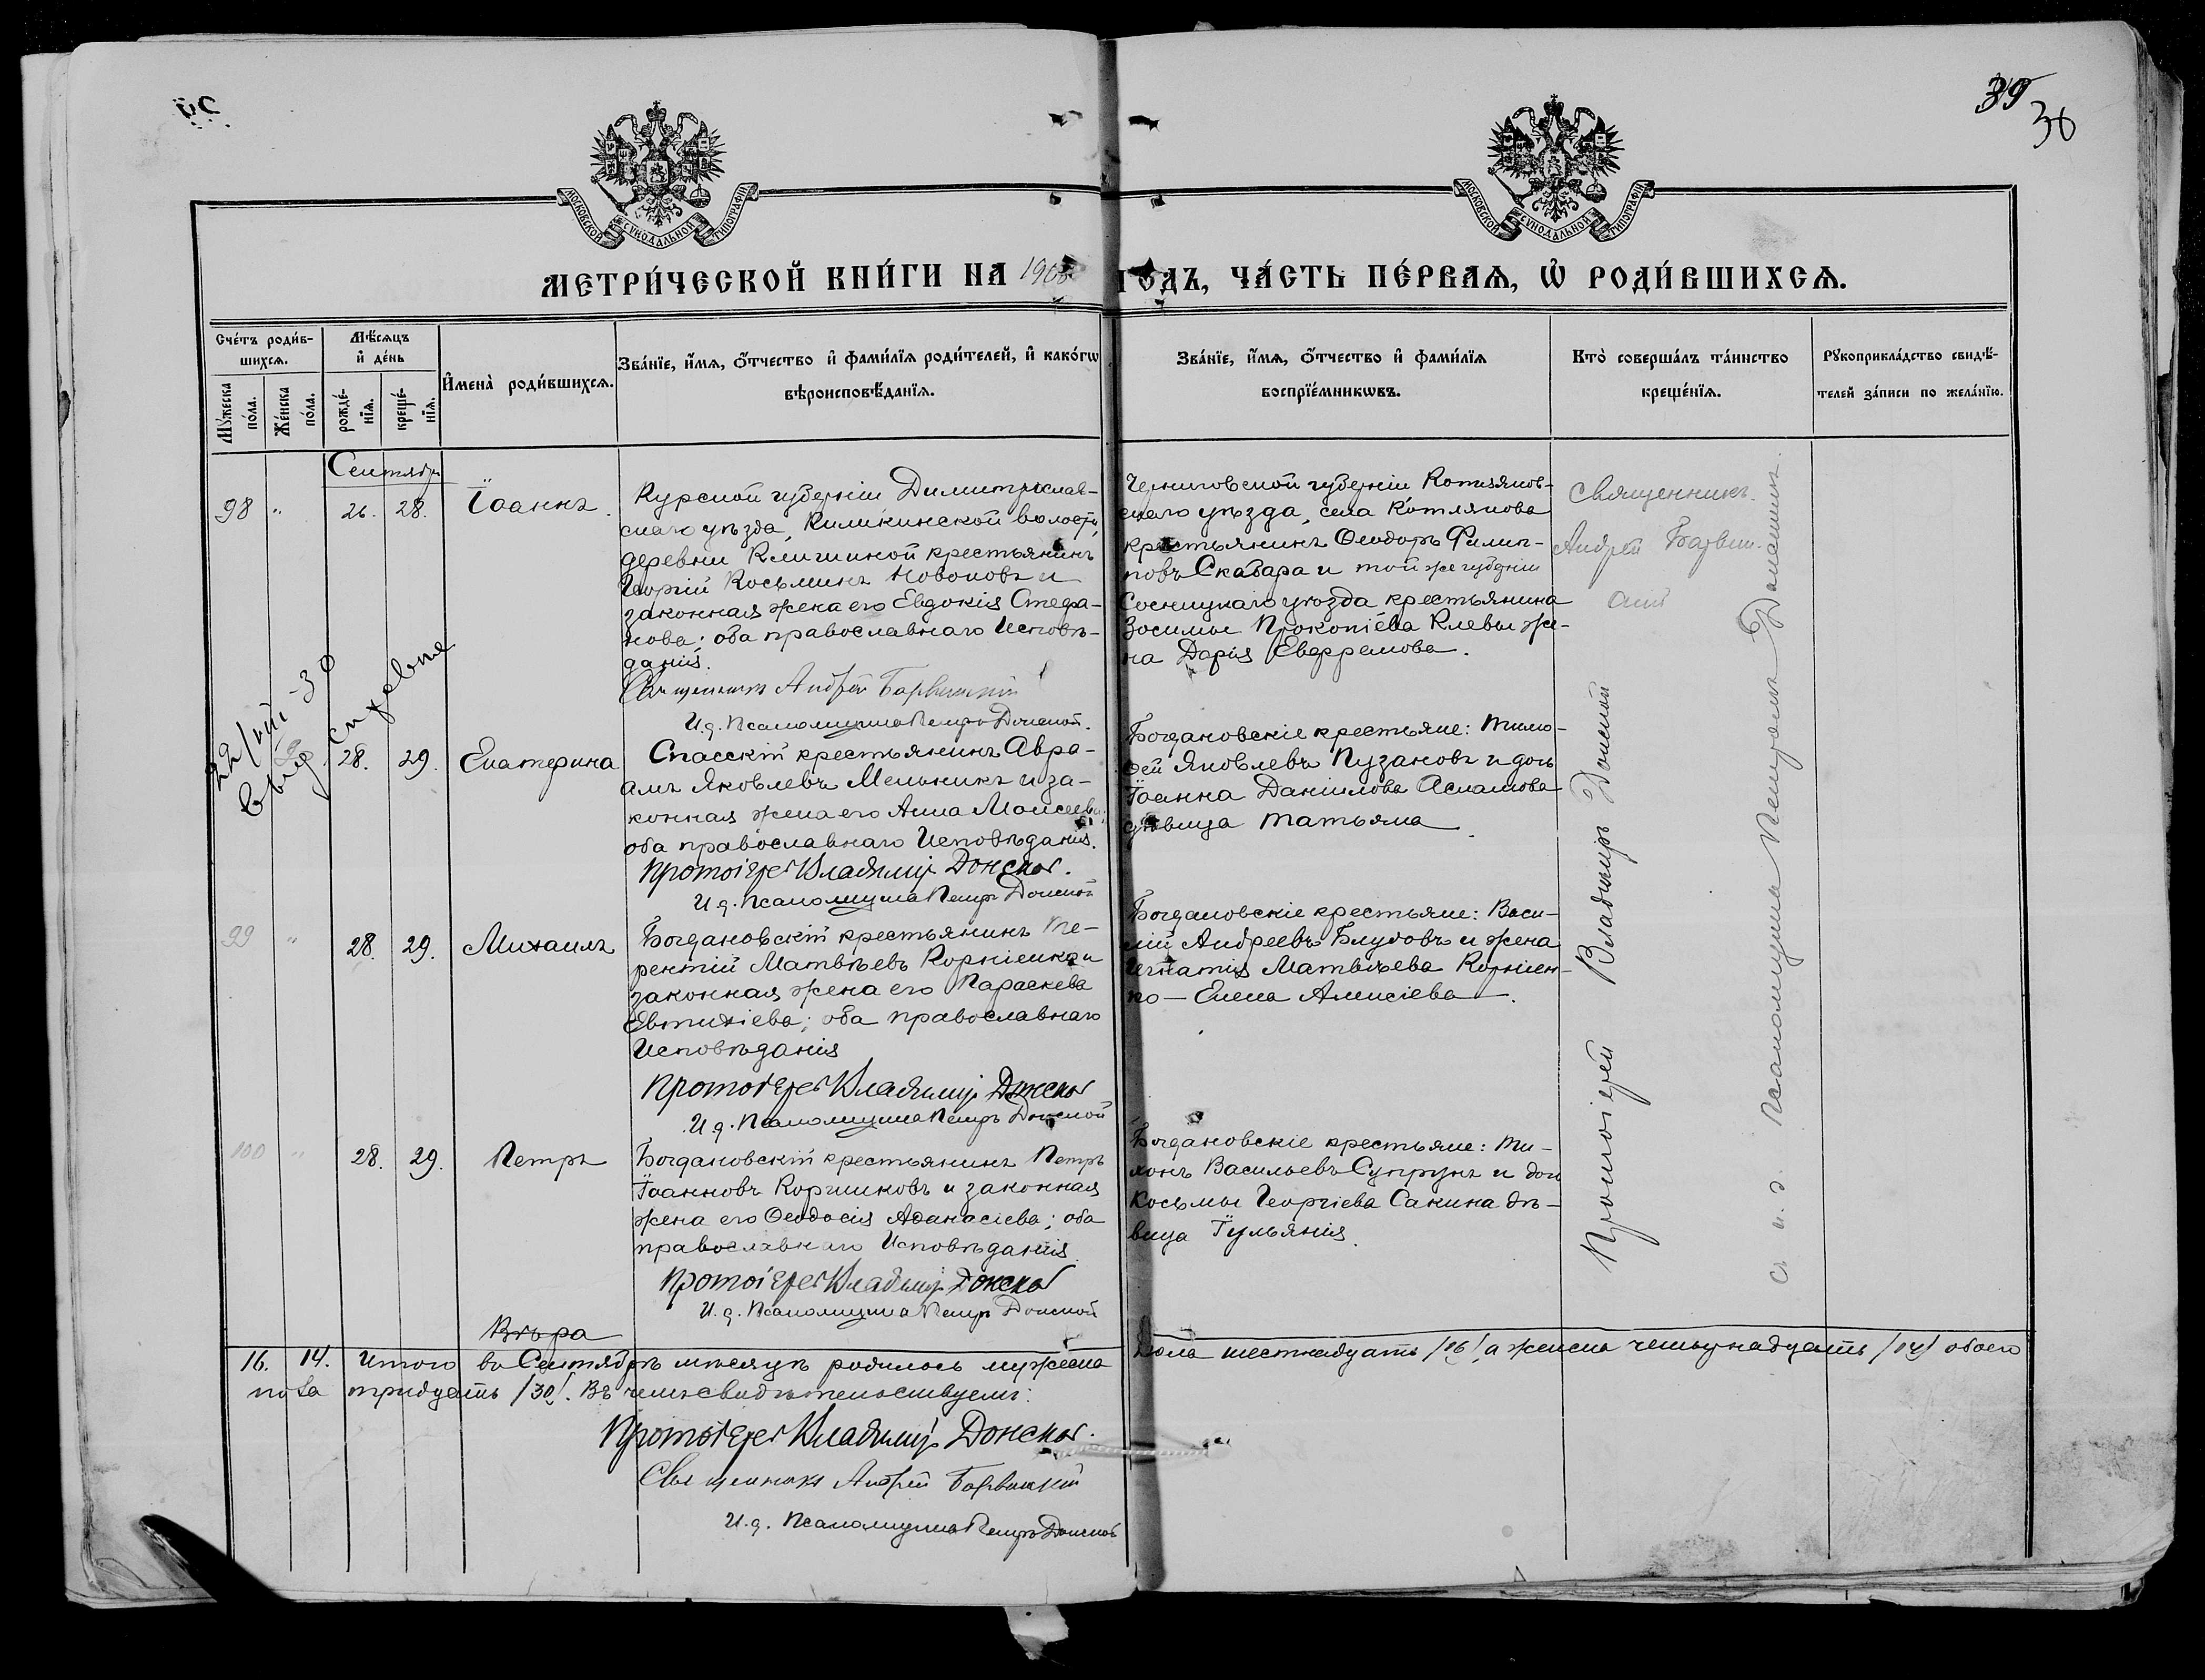 39
36
МОСКОВСКОЙ СѴНОДАЛЬНОЙ ТИПОГРАФІИ
МОСКОВСКОЙ СѴНОДАЛЬНОЙ ТИПОГРАФІИ
МЕТРИ́ЧЕСКОЙ КНИ́ГИ НА 1908 ГОДЪ, ЧА́СТЬ ПЕ́РВАѦ, Ѡ҆ РОДИ́ВШИХСѦ.
Сче́тъ роди́в-
шихсѧ.
Мꙋ́жеска
по́ла.
Же́нска
по́ла.
Мѣ́сѧцъ
и҆ де́нь
рожде́-
нїѧ.
креще́-
нїѧ.
И҆мена̀ роди́вшихсѧ.
Зва́нїе, и҆́мѧ, ѻ҆́тчество и҆ фами́лїѧ роди́телей, и҆ како́гѡ
вѣроисповѣ́данїѧ.
Зва́нїе, и҆́мѧ, ѻ҆́тчество и҆ фами́лїѧ
воспрїе́мникѡвъ.
Кто̀ соверша́лъ та́инство
креще́нїѧ.
Рꙋкоприкла́дство свидѣ́-
телей за́писи по жела́нїю.
Сентябрь
98 " 26. 28. Іоаннъ.
Курской губерніи Димитріслав-
скаго уѣзда, Киликинской волости,
деревни Клишиной крестьянинъ
Георгій Косьминъ Новоковъ и
законная жена его Евдокія Стефа-
нова; оба православнаго Исповѣ-
данія.
Священникъ Андрей Барвинскій
И.д. Псаломщика Петръ Донской.
Черниговской губерніи
скаго уѣзда, села Котлякова
крестьянинъ Ѳеодоръ Филип-
повъ Скабара и той же губерніи
Сосницкаго уѣзда крестьянина
Зосимы Прокопіева Клевы же-
на Дарія Евфремова.
Священникъ
Андрей Барвин-
скій
22/VIII-30
выд. св. хревне
28. 29. Екатерина
Спасскій крестьянинъ Авра-
амъ Яковлевъ Мельникъ и за-
конная жена его Анна Моисеева;
оба православнаго Исповѣданія.
Протоіерей Владиміръ Донской.
И.д. Псаломщика Петръ Донской
Богдановскіе крестьяне: Тимо-
ѳей Яковлевъ Пузановъ и дочь
Іоанна Даніилова Асламова
дѣвица Татьяна.
99 " 28. 29. Михаилъ
Богдановскій крестьянинъ Те-
рентій Матвѣевъ Корніенко и
законная жена его Параскева
Евтихіева; оба православнаго
Исповѣданія
Протоіерей Владиміръ Донской
И.д. Псаломщика Петръ Донской
Богдановскіе крестьяне: Васи-
лій Андреевъ Блудовъ и жена
Игнатія Матвѣева Корніен-
ко — Елена Алексіева.
100 " 28. 29. Петръ
Богдановскій крестьянинъ Петръ
Іоанновъ Коршиковъ и законная
жена его Ѳеодосія Аѳанасіева; оба
православнаго Исповѣданія
Протоіерей Владиміръ Донской
И.д. Псаломщика Петръ Донской
Богдановскіе крестьяне: Ти-
хонъ Васильевъ Супрунъ и дочь
Косьмы Георгіева Санина дѣ-
вица Іульянія.
Протоіерей Владиміръ Донской
съ и. д. Псаломщика Петромъ
Вѣра
16. 14. Итого въ Сентябрѣ мѣсяцѣ родилось мужеска пола шестнадцать /16/, а женска четырнадцать /14/ обоего
пола тридцать /30/. Въ чемъ свидѣтельствуемъ:
Протоіерей Владиміръ Донской.
Священникъ Андрей Барвинскій
И.д. Псаломщика Петръ Донской